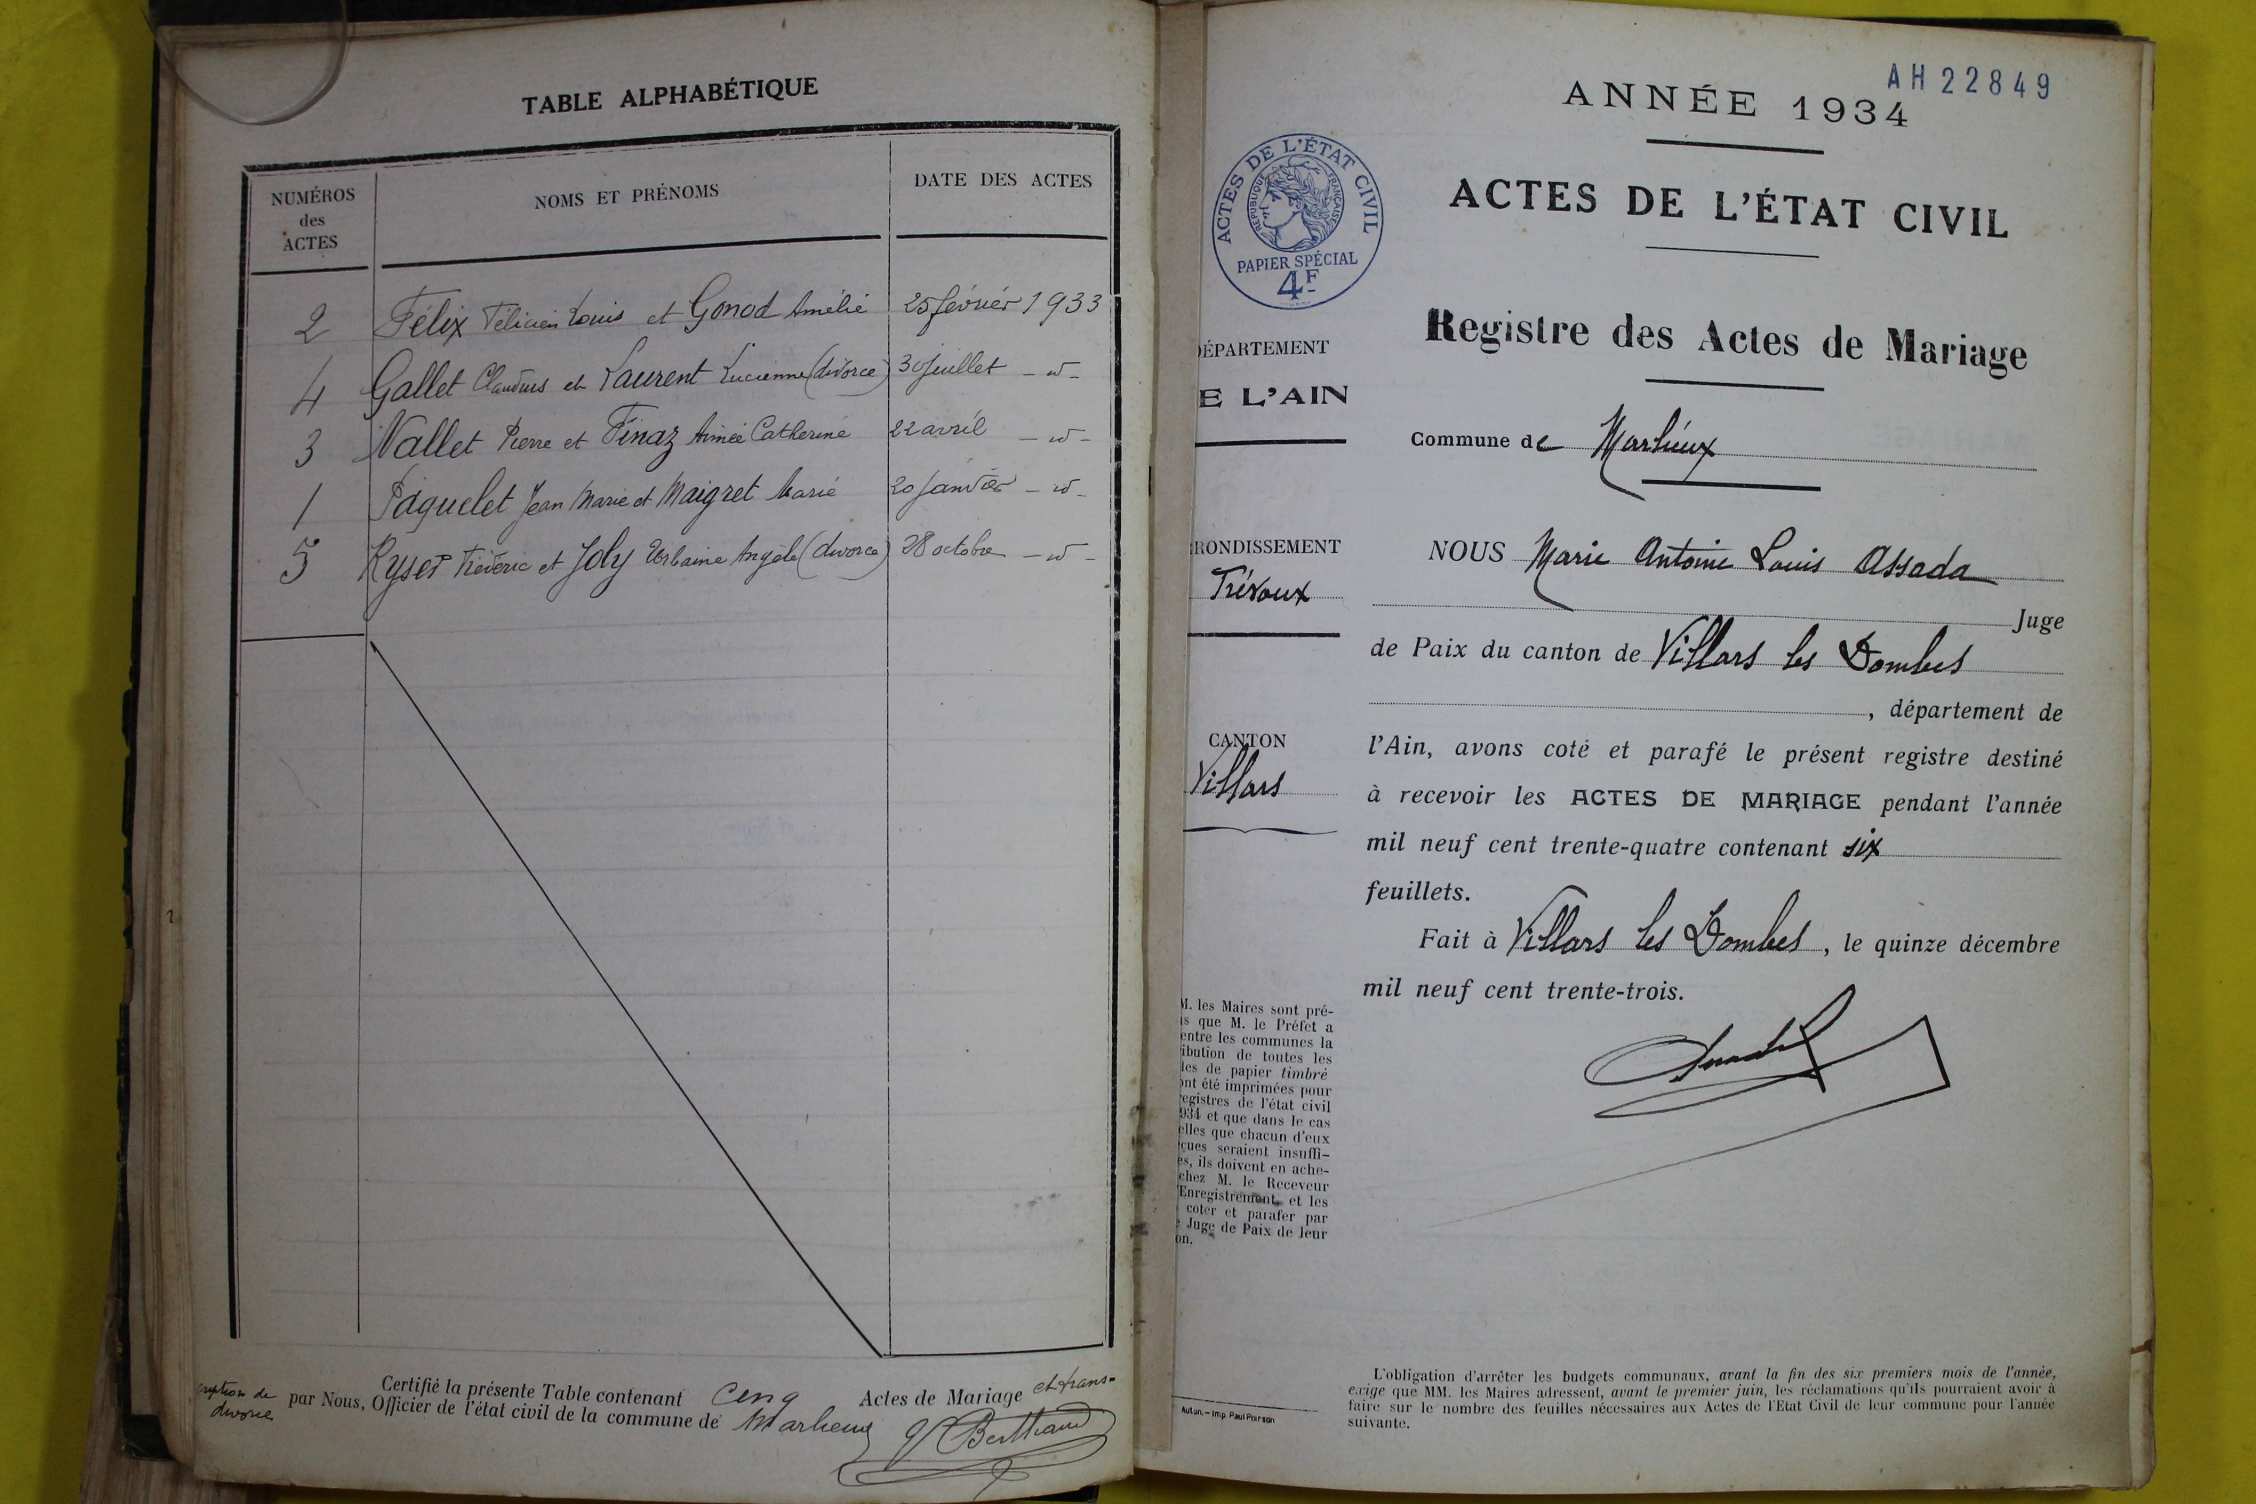 TABLE ALPHABÉTIQUE
NUMÉROS
des
ACTES
NOMS ET PRÉNOMS
DATE DES ACTES
2 Félix Félicien Louis et Gonod Amélie 25 février 1933
4 Gallet Claudius et Laurent Lucienne (divorce) 30 juillet - d° -
3 Nallet Pierre et Finaz Aimée Catherine 22 avril - d° -
1 Paquelet Jean Marie et Maigret Marie 20 janvier - d° -
5 Ryser Fréderic et Joly Urbaine Angèle (divorce) 28 octobre - d° -
Certifié la présente Table contenant cinq Actes de Mariage et trans-
cription de divorce par Nous, Officier de l'état civil de la commune de Marlieux
Bertheaud
AH 22849
ANNÉE 1934
ACTES DE L'ÉTAT CIVIL
ACTES DE L'ÉTAT CIVIL
RÉPUBLIQUE FRANÇAISE
PAPIER SPÉCIAL
4F
Registre des Actes de Mariage
DÉPARTEMENT
E L'AIN
Commune de Marlieux
RONDISSEMENT
Trévoux
CANTON
Villars
NOUS Marie Antoine Louis Assada
Juge
de Paix du canton de Villars les Dombes
, département de
l'Ain, avons coté et parafé le présent registre destiné
à recevoir les ACTES DE MARIAGE pendant l'année
mil neuf cent trente-quatre contenant six
feuillets.
Fait à Villars les Dombes, le quinze décembre
mil neuf cent trente-trois.
M. les Maires sont pré-
s que M. le Préfet a
entre les communes la
ibution de toutes les
les de papier timbré
ont été imprimées pour
registres de l'état civil
934 et que dans le cas
elles que chacun d'eux
çues seraient insuffi-
es, ils doivent en ache-
chez M. le Receveur
'Enregistrement, et les
coter et parafer par
e Juge de Paix de leur
on.
Autun. — Imp. Paul Poirson
L'obligation d'arrêter les budgets communaux, avant la fin des six premiers mois de l'année,
exige que MM. les Maires adressent, avant le premier juin, les réclamations qu'ils pourraient avoir à
faire sur le nombre des feuilles nécessaires aux Actes de l'Etat Civil de leur commune pour l'année
suivante.